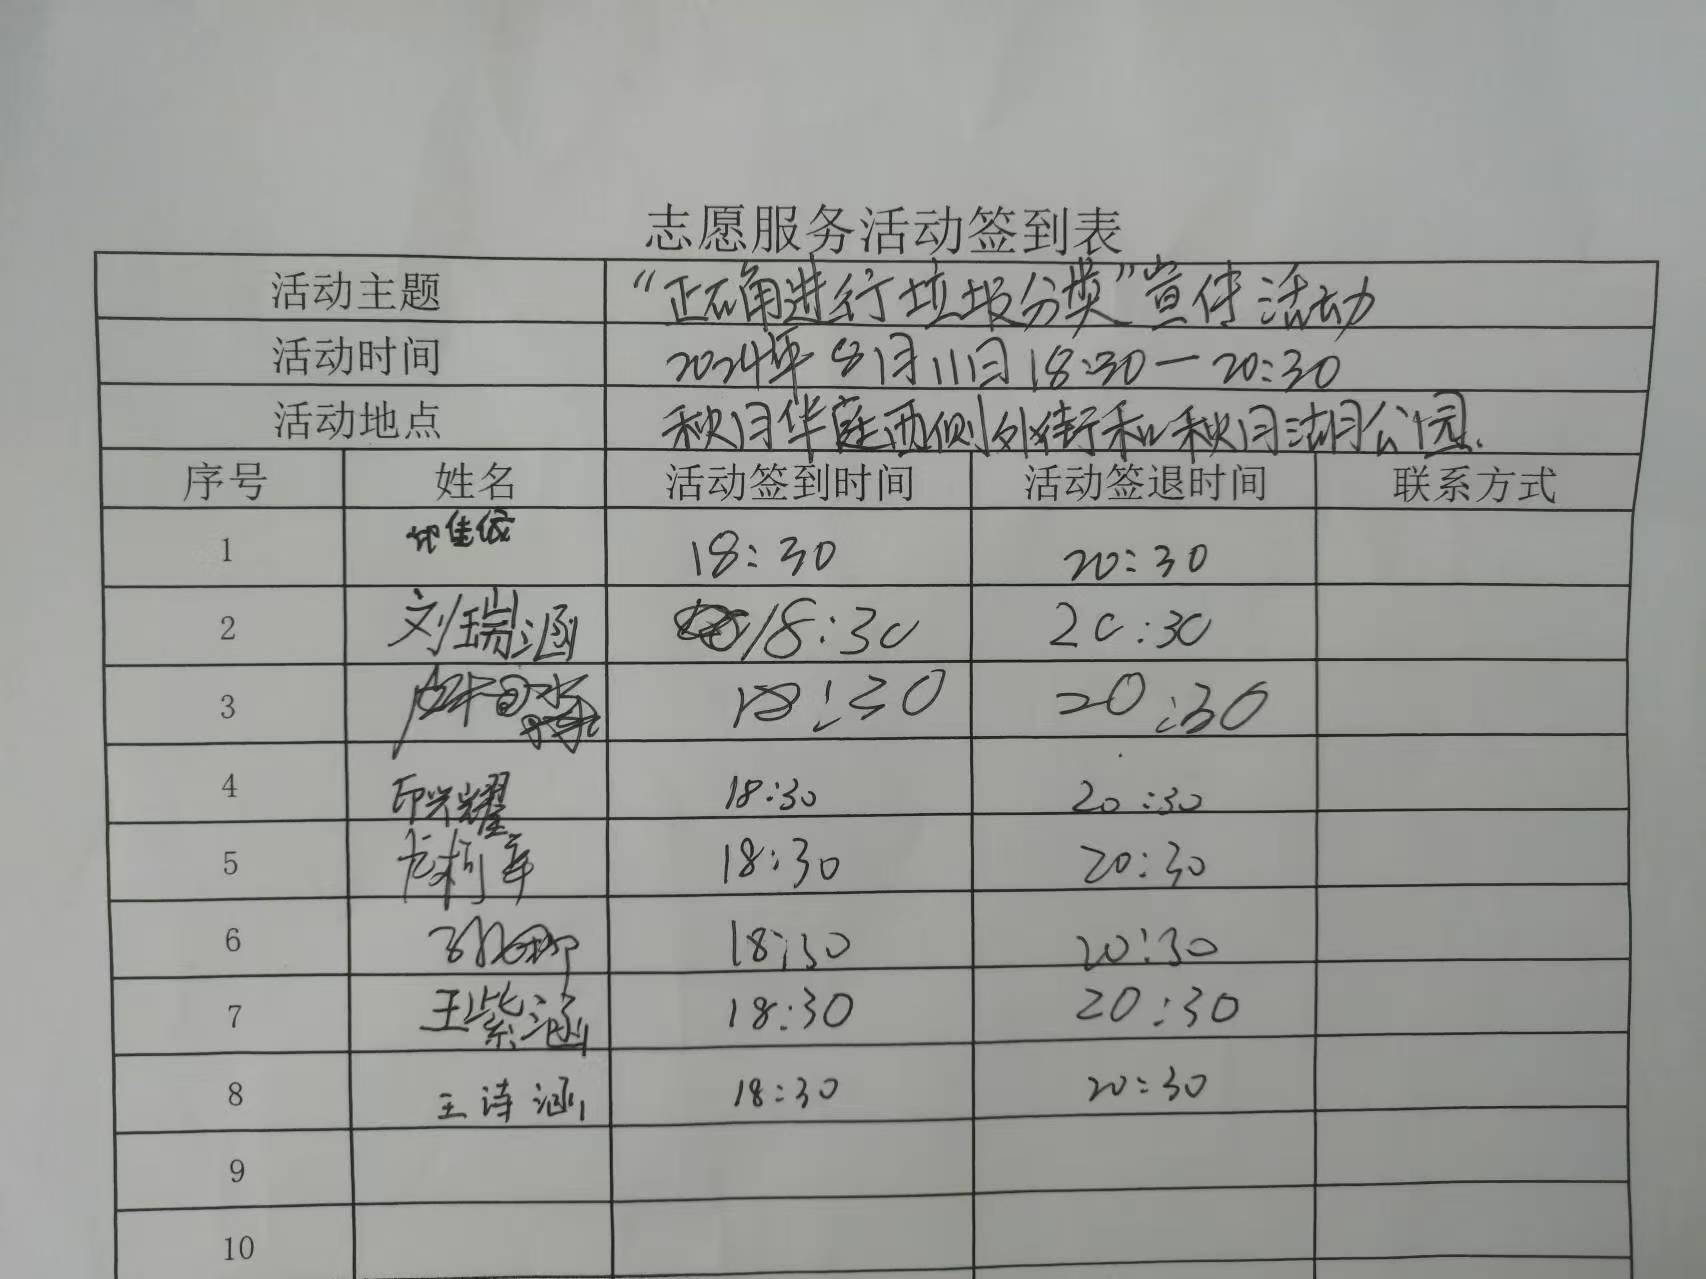 志愿服务活动签到表
活动主题 “正确进行垃圾分类”宣传活动
活动时间 2024年8月11日18:30—20:30
活动地点 秋月华庭西侧外街和秋月湖公园.
序号 姓名 活动签到时间 活动签退时间 联系方式
1 佳依 18:30 20:30
2 刘瑞涵 18:30 20:30
3 18:30 20:30
4 印兴耀 18:30 20:30
5 18:30 20:30
6 18:30 20:30
7 王紫涵 18:30 20:30
8 王诗涵 18:30 20:30
9
10